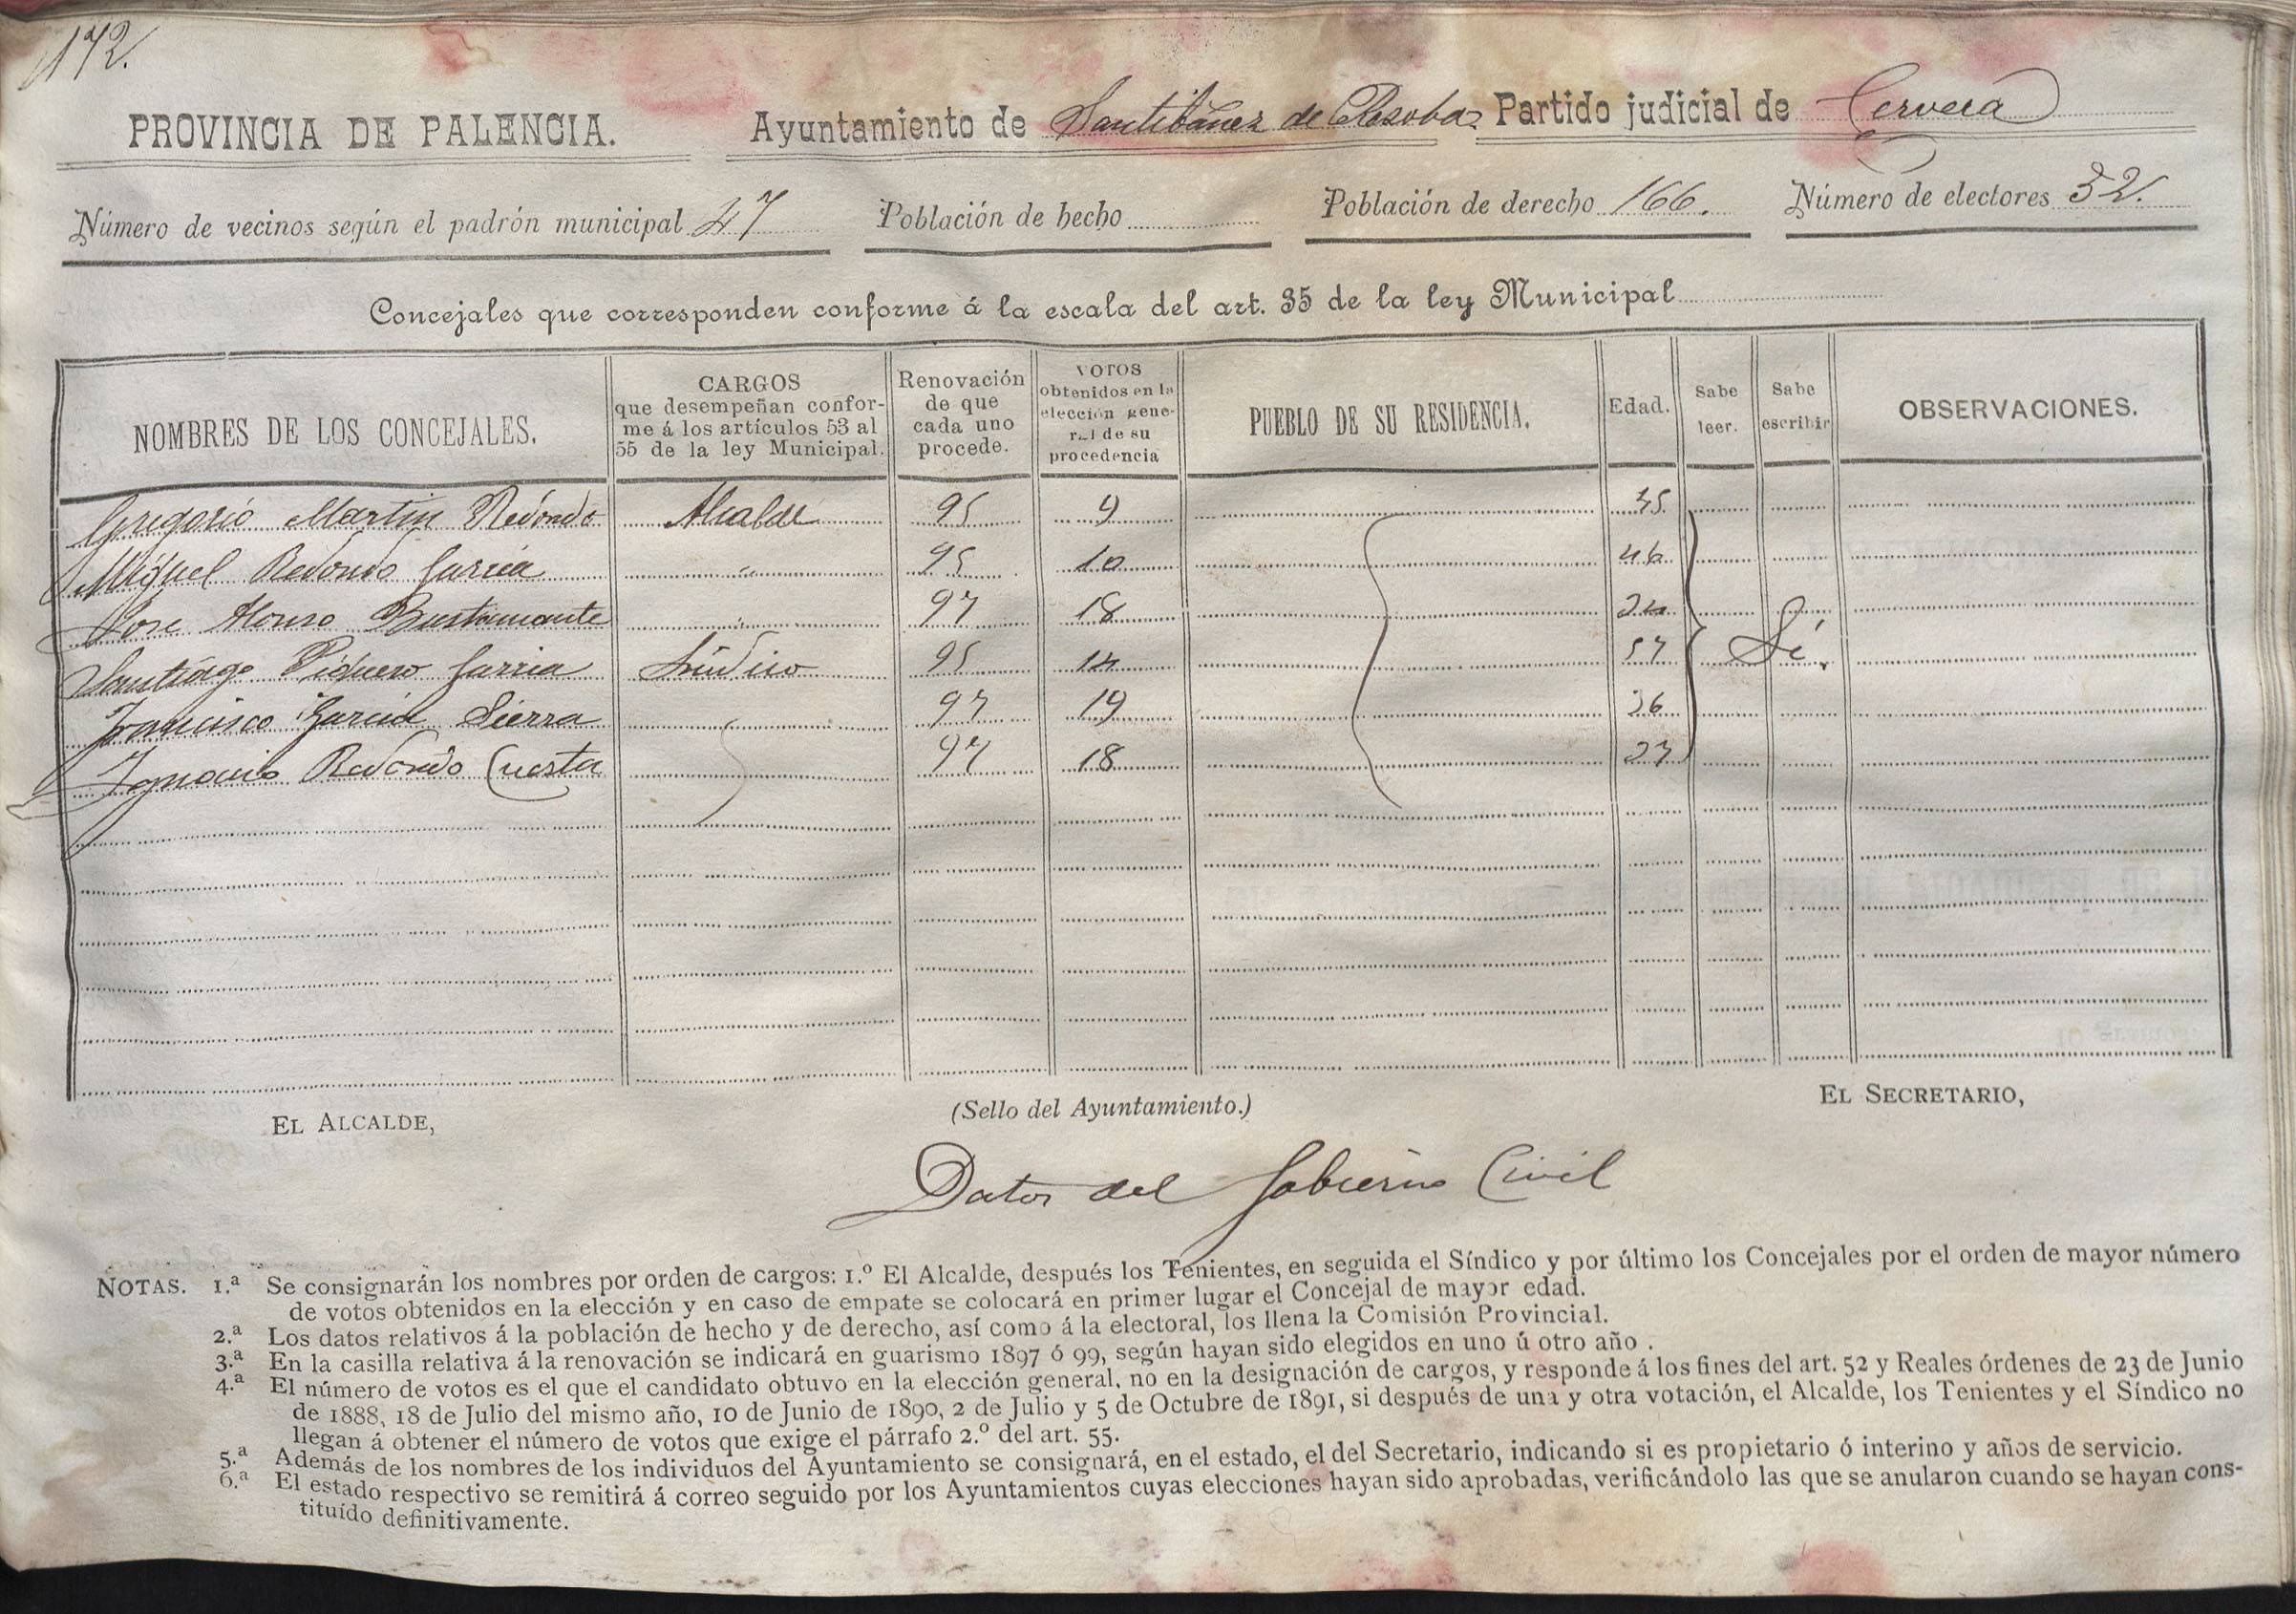 172.
PROVINCIA DE PALENCIA. Ayuntamiento de Santibáñez de Resoba Partido judicial de Cervera
Número de vecinos según el padrón municipal 47 Población de hecho Población de derecho 166. Número de electores 32.
Concejales que corresponden conforme á la escala del art. 35 de la ley Municipal
NOMBRES DE LOS CONCEJALES.
CARGOS
que desempeñan confor-
me á los artículos 53 al
55 de la ley Municipal.
Renovación
de que
cada uno
procede.
VOTOS
obtenidos en la
elección gene-
ral de su
procedencia
PUEBLO DE SU RESIDENCIA.
Edad.
Sabe
leer.
Sabe
escribir
OBSERVACIONES.
Gregorio Martin Redondo Alcalde 95 9 35
Miguel Redondo Garcia " 95 10 46
Jose Alonso Bustamante " 97 18 34
Santiago Piquero Garcia Síndico 95 14 57 Sí.
Francisco Garcia Sierra 97 19 36
Ignacio Redondo Cuesta 97 18 27
EL ALCALDE,
(Sello del Ayuntamiento.)
EL SECRETARIO,
Datos del Gobierno Civil
NOTAS. 1.ª Se consignarán los nombres por orden de cargos: 1.º El Alcalde, después los Tenientes, en seguida el Síndico y por último los Concejales por el orden de mayor número
de votos obtenidos en la elección y en caso de empate se colocará en primer lugar el Concejal de mayor edad.
2.ª Los datos relativos á la población de hecho y de derecho, así como á la electoral, los llena la Comisión Provincial.
3.ª En la casilla relativa á la renovación se indicará en guarismo 1897 ó 99, según hayan sido elegidos en uno ú otro año .
4.ª El número de votos es el que el candidato obtuvo en la elección general, no en la designación de cargos, y responde á los fines del art. 52 y Reales órdenes de 23 de Junio
de 1888, 18 de Julio del mismo año, 10 de Junio de 1890, 2 de Julio y 5 de Octubre de 1891, si después de una y otra votación, el Alcalde, los Tenientes y el Síndico no
llegan á obtener el número de votos que exige el párrafo 2.º del art. 55.
5.ª Además de los nombres de los individuos del Ayuntamiento se consignará, en el estado, el del Secretario, indicando si es propietario ó interino y años de servicio.
6.ª El estado respectivo se remitirá á correo seguido por los Ayuntamientos cuyas elecciones hayan sido aprobadas, verificándolo las que se anularon cuando se hayan cons-
tituído definitivamente.